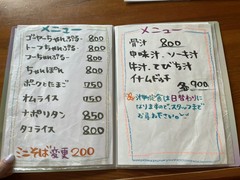 メニュー
ゴーヤーちゃんぷるー 800
トーフちゃんぷるー 800
フーちゃんぷるー 800
ちゃんぽん 800
ポークとたまご 750
オムライス 750
ナポリタン 850
タコライス 800
ミニそば変更 200
メニュー
骨汁 800
中味汁、ソーキ汁
牛汁、てびち汁
イナムドゥチ
各900
日替わりに
なりますので、スタッフまで
お尋ね下さい